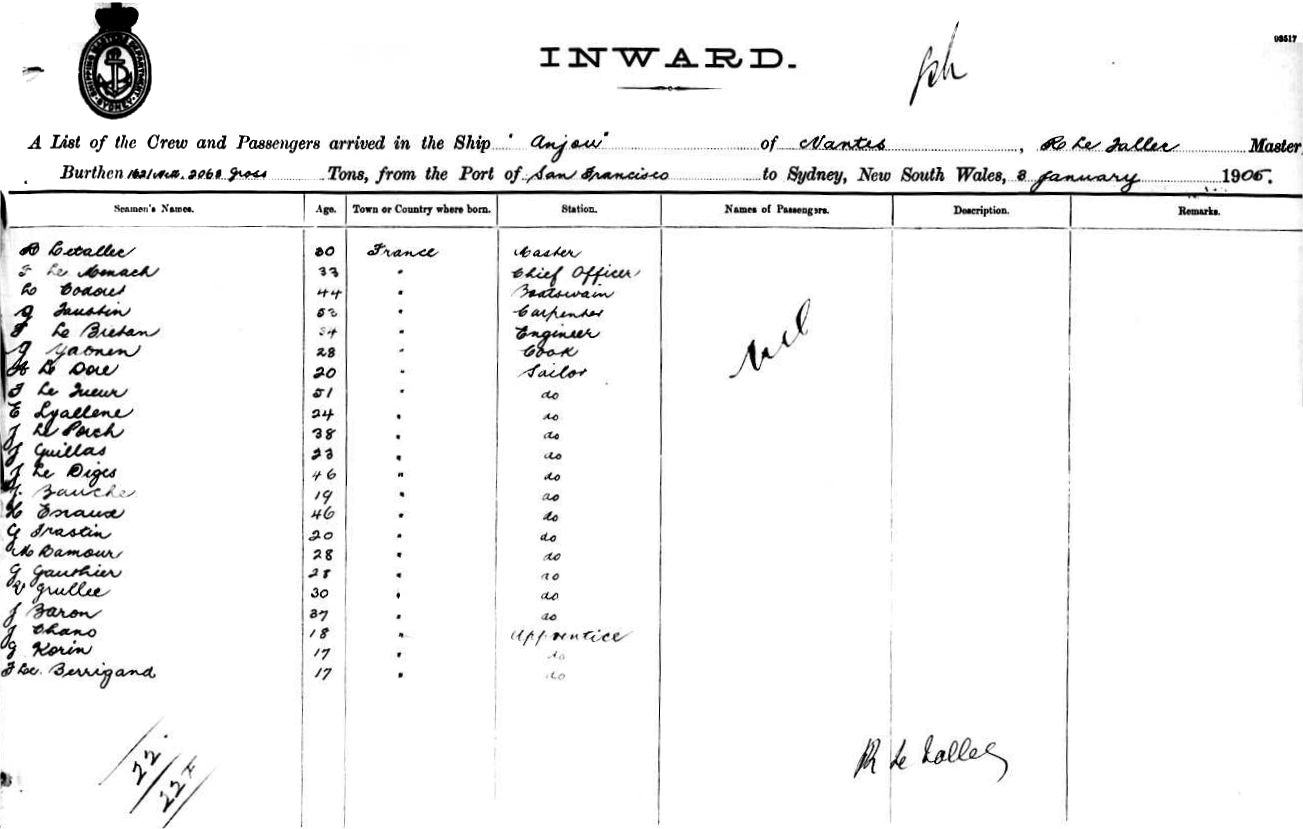 98517
SHIPPING MASTER'S DEPARTMENT SYDNEY
INWARD.
A List of the Crew and Passengers arrived in the Ship "Anjou" of Nantes, R Le Taller Master
Burthen 1621 Nett. 2068 gross Tons, from the Port of San Francisco to Sydney, New South Wales, 8 January 1905.
Seamen's Names. Age. Town or Country where born. Station. Names of Passengers. Description. Remarks.
R Letallec 30 France Master
F Le Monach 33 " Chief Officer
44 " Boatswain
J Faustin 53 " Carpenter
F Le Bretan 34 " Engineer
28 " Cook
Le Dore 20 " Sailor
F Le Tueur 51 " do
E Lyallene 24 " do
J Le Porch 38 " do
J Guillas 23 " do
J Le Diges 46 " do
J. Bauche 19 " do
46 " do
G Trastin 20 " do
Damour 28 " do
G Gauthier 28 " do
V Grullee 30 " do
J Baron 37 " do
J Chano 18 " Apprentice
G Korin 17 " do
F Le. Berrigand 17 " do
Nil
R Le Tallec
22
22+